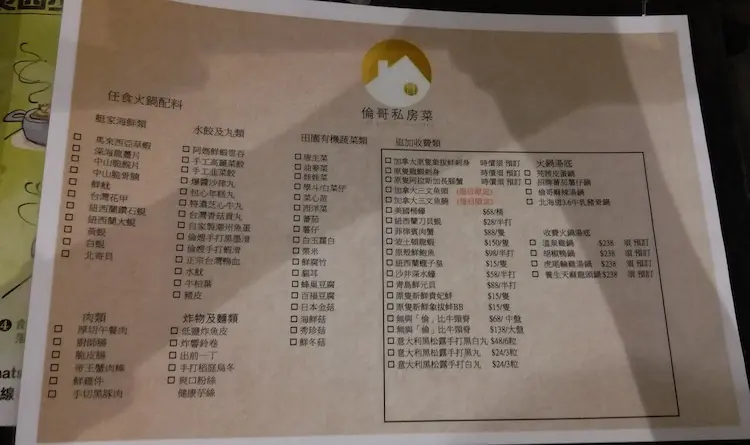 倫哥私房菜
任食火鍋配料
艇家海鮮類
馬來西亞草蝦
深海龍躉片
中山脆鯇片
中山脆魚腩
鮮魷
台灣花甲
紐西蘭鑽石蜆
紐西蘭大蜆
黃蜆
白蜆
北寄貝
水餃及丸類
阿媽鮮蝦雲吞
手工高麗菜餃
手工韭菜餃
爆醬沙爹丸
包心年糕丸
特濃芝心牛丸
台灣香菇貢丸
自家製潮州魚蛋
倫嫂手打墨滑
倫嫂手打蝦滑
正宗台灣鴨血
水魷
牛柏葉
豬皮
田園有機蔬菜類
唐生菜
油麥菜
娃娃菜
學斗白菜仔
菜心苗
西洋菜
蕃茄
薯仔
白玉蘿白
粟米
鮮腐竹
雲耳
蜂巢豆腐
百福豆腐
日本金菇
海鮮菇
秀珍菇
鮮冬菇
肉類
厚切午餐肉
廚師腸
脆皮腸
帝王蟹肉棒
鮮雞件
手切黑豚肉
炸物及麵類
低鹽炸魚皮
炸響鈴卷
出前一丁
手打稻庭烏冬
爽口粉絲
健康芋絲
追加收費類
加拿大原隻象拔鮮刺身 時價須 預訂
原隻龍蝦刺身 時價須 預訂
原隻阿拉斯加長腳蟹 時價須 預訂
加拿大三文魚頭
加拿大三文魚腩
美國桶蠔 $68/桶
紐西蘭刀貝蜆 $28/半打
菲律賓肉蟹 $88/隻
波士頓龍蝦 $150/隻
原殼鮮鮑魚 $98/半打
紐西蘭蟶子皇 $15/隻
沙井深水蠔 $58/半打
青島鮮元貝 $88/半打
原隻新鮮貴妃鮮 $15/隻
原隻新鮮象拔鮮BB $15/隻
無與「倫」比牛頸脊 $68/ 中盤
無與「倫」比牛頸脊 $138/大盤
意大利黑松露手打黑白丸 $48/6粒
意大利黑松露手打黑丸 $24/3粒
意大利黑松露手打白丸 $24/3粒
火鍋湯底
芫茜皮蛋鍋
招牌蕃茄薯仔鍋
倫哥麻辣湯鍋
北海道3.6牛乳豬骨鍋
收費火鍋湯底
溫泉雞鍋 $238 須 預訂
胡椒鴨鍋 $238 須 預訂
虎尾輪雞湯鍋 $238 須 預訂
養生天麻龍頭鍋 $238 須 預訂